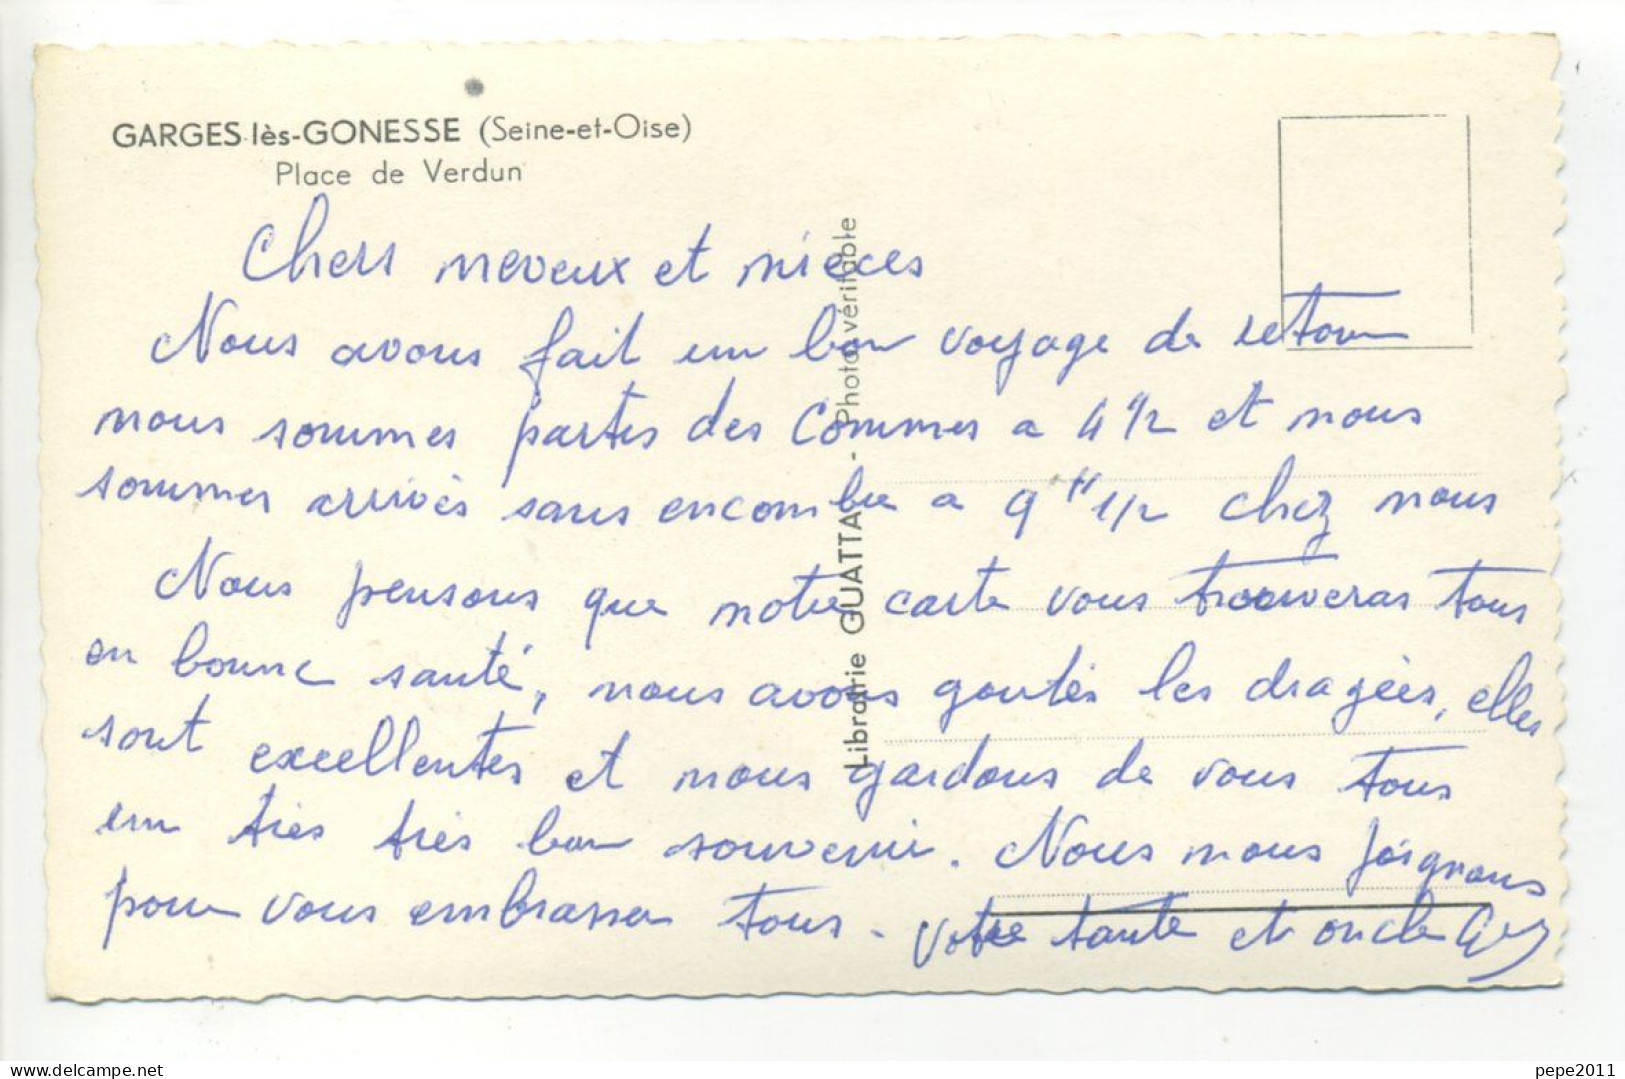 GARGES-lès-GONESSE (Seine-et-Oise)
Place de Verdun
Chers neveux et nièces
Nous avons fait un bon voyage de retour
nous sommes partis des Commes a 4 1/2 et nous
sommes arrivés sans encombre a 9 H 1/2 chez nous
Nous pensons que notre carte vous trouveras tous
en bonne santé, nous avons goutés les dragées, elles
sont excellentes et nous gardons de vous tous
un très très bon souvenir. Nous nous joignons
pour vous embrasser tous. Votre tante et oncle
Librairie GUATTA - Photo véritable
www.delcampe.net
pepe2011